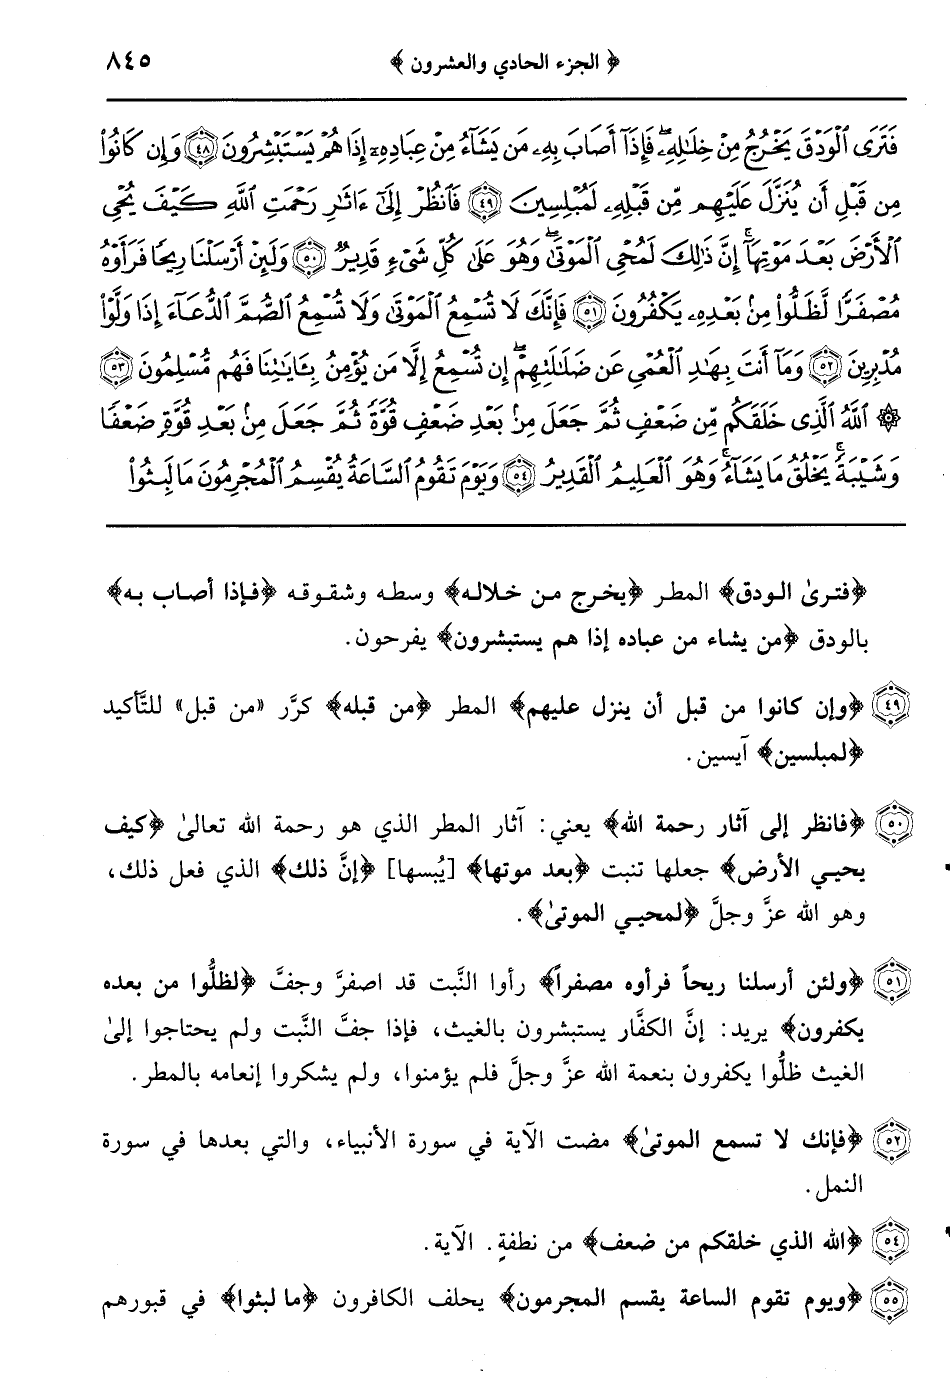 ﴿ الجزء الحادي والعشرون ﴾ ٨٤٥
فَتَرَى ٱلْوَدْقَ يَخْرُجُ مِنْ خِلَٰلِهِۦۖ فَإِذَآ أَصَابَ بِهِۦ مَن يَشَآءُ مِنْ عِبَادِهِۦٓ إِذَا هُمْ يَسْتَبْشِرُونَ ٤٨ وَإِن كَانُوا۟
مِن قَبْلِ أَن يُنَزَّلَ عَلَيْهِم مِّن قَبْلِهِۦ لَمُبْلِسِينَ ٤٩ فَٱنظُرْ إِلَىٰٓ ءَاثَٰرِ رَحْمَتِ ٱللَّهِ كَيْفَ يُحْىِ
ٱلْأَرْضَ بَعْدَ مَوْتِهَآۚ إِنَّ ذَٰلِكَ لَمُحْىِ ٱلْمَوْتَىٰۖ وَهُوَ عَلَىٰ كُلِّ شَىْءٍ قَدِيرٌ ٥٠ وَلَئِنْ أَرْسَلْنَا رِيحًا فَرَأَوْهُ
مُصْفَرًّا لَّظَلُّوا۟ مِنۢ بَعْدِهِۦ يَكْفُرُونَ ٥١ فَإِنَّكَ لَا تُسْمِعُ ٱلْمَوْتَىٰ وَلَا تُسْمِعُ ٱلصُّمَّ ٱلدُّعَآءَ إِذَا وَلَّوْا۟
مُدْبِرِينَ ٥٢ وَمَآ أَنتَ بِهَٰدِ ٱلْعُمْىِ عَن ضَلَٰلَتِهِمْۖ إِن تُسْمِعُ إِلَّا مَن يُؤْمِنُ بِـَٔايَٰتِنَا فَهُم مُّسْلِمُونَ ٥٣
۞ ٱللَّهُ ٱلَّذِى خَلَقَكُم مِّن ضَعْفٍ ثُمَّ جَعَلَ مِنۢ بَعْدِ ضَعْفٍ قُوَّةً ثُمَّ جَعَلَ مِنۢ بَعْدِ قُوَّةٍ ضَعْفًا
وَشَيْبَةًۚ يَخْلُقُ مَا يَشَآءُۚ وَهُوَ ٱلْعَلِيمُ ٱلْقَدِيرُ ٥٤ وَيَوْمَ تَقُومُ ٱلسَّاعَةُ يُقْسِمُ ٱلْمُجْرِمُونَ مَا لَبِثُوا۟
﴿فترىٰ الودق﴾ المطر ﴿يخرج من خلاله﴾ وسطه وشقوقه ﴿فإذا أصاب به﴾
بالودق ﴿من يشاء من عباده إذا هم يستبشرون﴾ يفرحون.
٤٩ ﴿وإن كانوا من قبل أن ينزل عليهم﴾ المطر ﴿من قبله﴾ كرَّر «من قبل» للتَّأكيد
﴿لمبلسين﴾ آيسين.
٥٠ ﴿فانظر إلى آثار رحمة الله﴾ يعني: آثار المطر الذي هو رحمة الله تعالىٰ ﴿كيف
يحيـي الأرض﴾ جعلها تنبت ﴿بعد موتها﴾ [يُبسها] ﴿إنَّ ذلك﴾ الذي فعل ذلك،
وهو الله عزَّ وجلَّ ﴿لمحيـي الموتىٰ﴾.
٥١ ﴿ولئن أرسلنا ريحاً فرأوه مصفراً﴾ رأوا النَّبت قد اصفرَّ وجفَّ ﴿لظلُّوا من بعده
يكفرون﴾ يريد: إنَّ الكفَّار يستبشرون بالغيث، فإذا جفَّ النَّبت ولم يحتاجوا إلىٰ
الغيث ظلُّوا يكفرون بنعمة الله عزَّ وجلَّ فلم يؤمنوا، ولم يشكروا إنعامه بالمطر.
٥٢ ﴿فإنك لا تسمع الموتىٰ﴾ مضت الآية في سورة الأنبياء، والتي بعدها في سورة
النمل.
٥٤ ﴿الله الذي خلقكم من ضعف﴾ من نطفةٍ. الآية.
٥٥ ﴿ويوم تقوم الساعة يقسم المجرمون﴾ يحلف الكافرون ﴿ما لبثوا﴾ في قبورهم